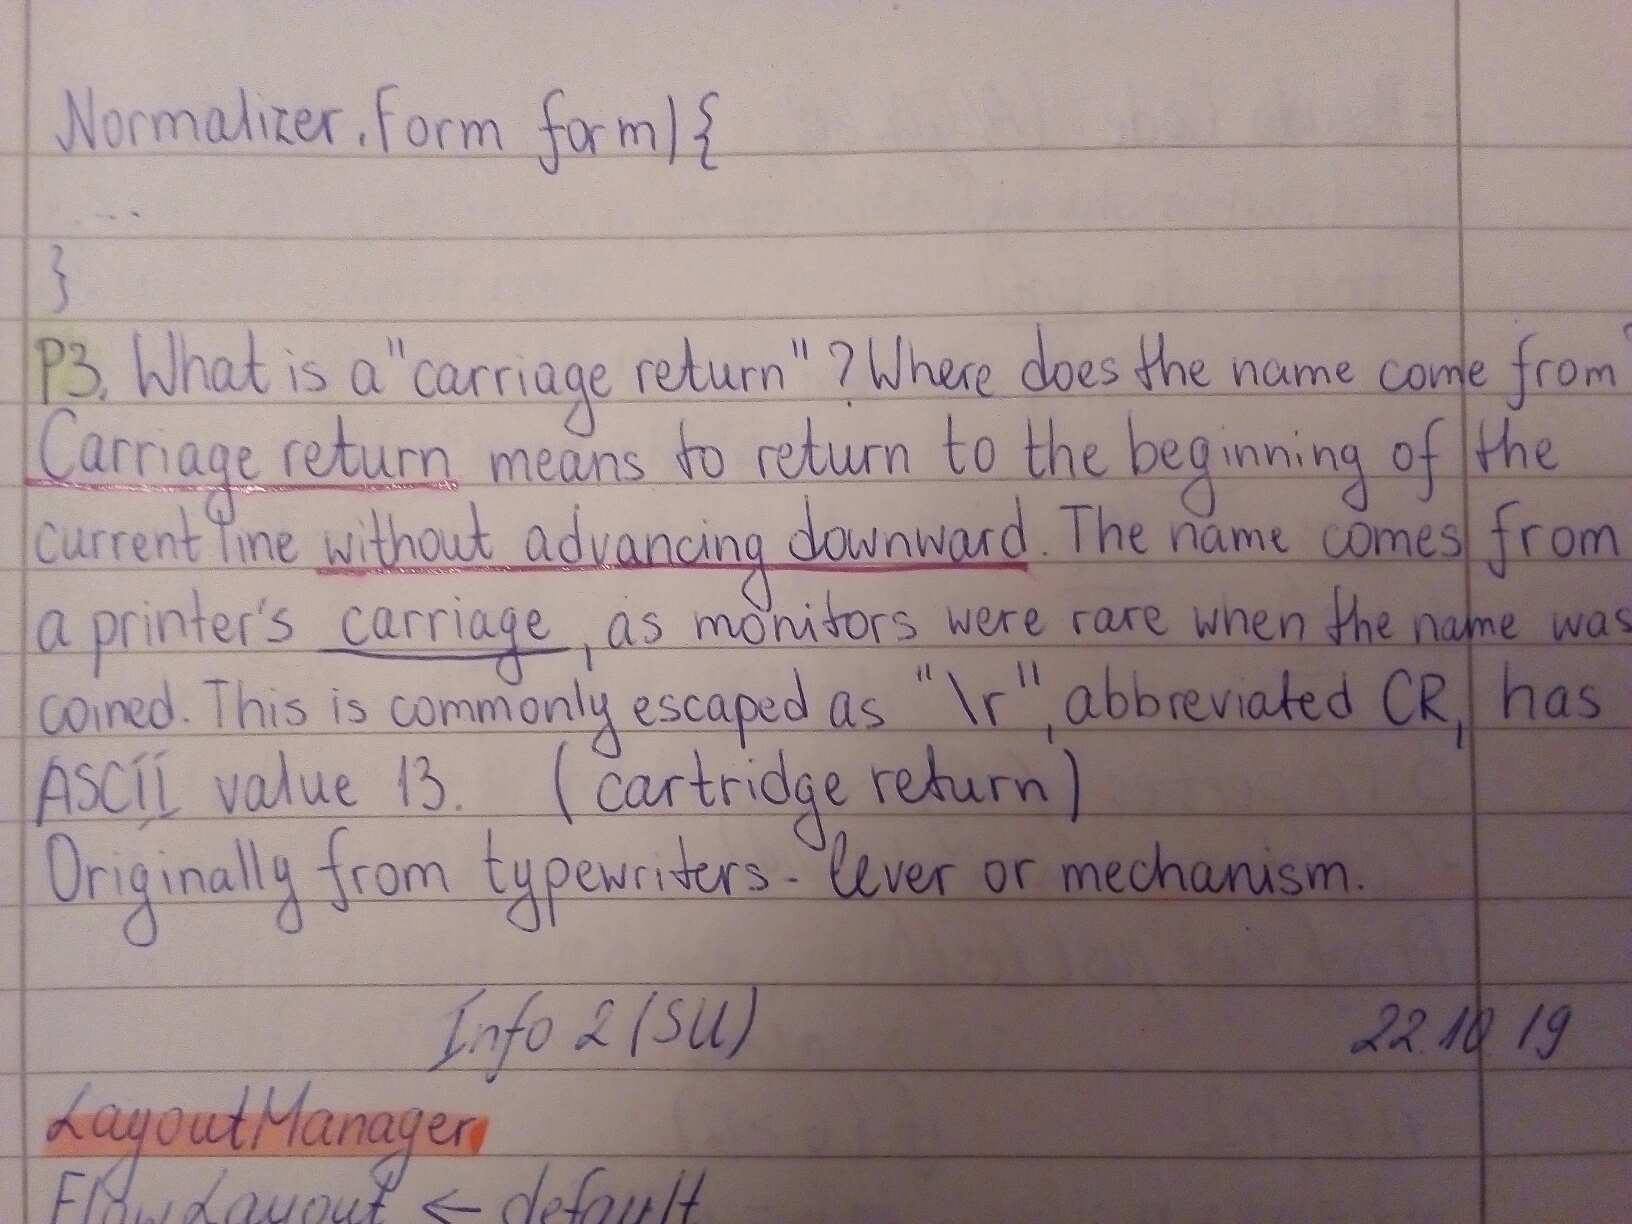 Normalizer.Form form) {
...
}
P3. What is a "carriage return"? Where does the name come from?
Carriage return means to return to the beginning of the
current line without advancing downward. The name comes from
a printer's carriage, as monitors were rare when the name was
coined. This is commonly escaped as "\r", abbreviated CR, has
ASCII value 13. (cartridge return)
Originally from typewriters - lever or mechanism.
Info 2 (SU) 22.10 19
LayoutManager
FlowLayout ← default